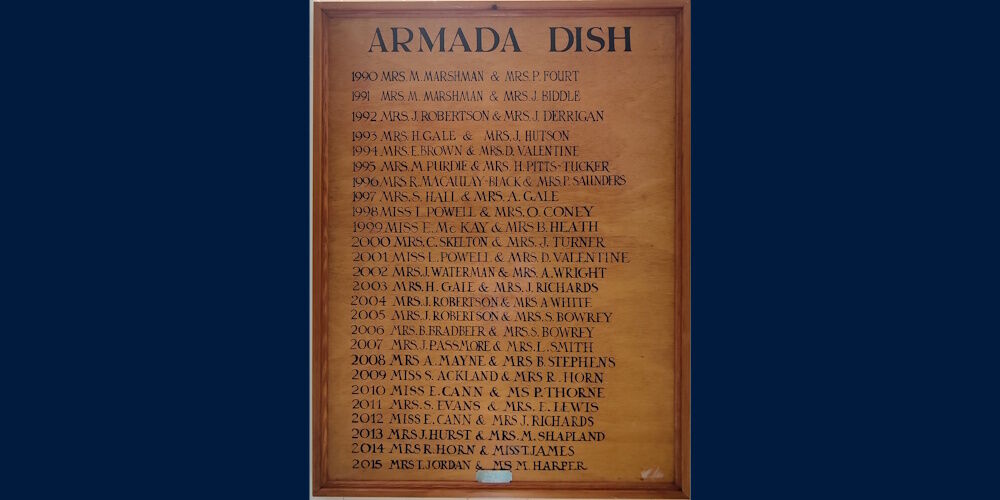 ARMADA DISH
1990 MRS. M. MARSHMAN & MRS. P. FOURT
1991 MRS. M. MARSHMAN & MRS. J. BIDDLE
1992 MRS. J. ROBERTSON & MRS. J. DERRIGAN
1993 MRS. H. GALE & MRS. J. HUTSON
1994 MRS. E. BROWN & MRS. D. VALENTINE
1995 MRS. M PURDIE & MRS. H. PITTS-TUCKER
1996 MRS R. MACAULAY-BLACK & MRS. P. SAUNDERS
1997 MRS. S. HALL & MRS. A. GALE
1998 MISS L. POWELL & MRS. O. CONEY
1999 MISS E. Mc KAY & MRS B. HEATH
2000 MRS. C. SKELTON & MRS. J. TURNER
2001 MISS L. POWELL & MRS. D. VALENTINE
2002 MRS. J. WATERMAN & MRS. A. WRIGHT
2003 MRS. H. GALE & MRS. J. RICHARDS
2004 MRS. J. ROBERTSON & MRS A WHITE
2005 MRS. J. ROBERTSON & MRS. S. BOWREY
2006 MRS. B. BRADBEER & MRS. S. BOWREY
2007 MRS. J. PASSMORE & MRS. L. SMITH
2008 MRS A. MAYNE & MRS B. STEPHENS
2009 MISS S. ACKLAND & MRS R. HORN
2010 MISS E. CANN & MS P. THORNE
2011 MRS. S. EVANS & MRS. E. LEWIS
2012 MISS E. CANN & MRS J. RICHARDS
2013 MRS J. HURST & MRS. M. SHAPLAND
2014 MRS R. HORN & MISS T. JAMES
2015 MRS T. JORDAN & MS M. HARPER